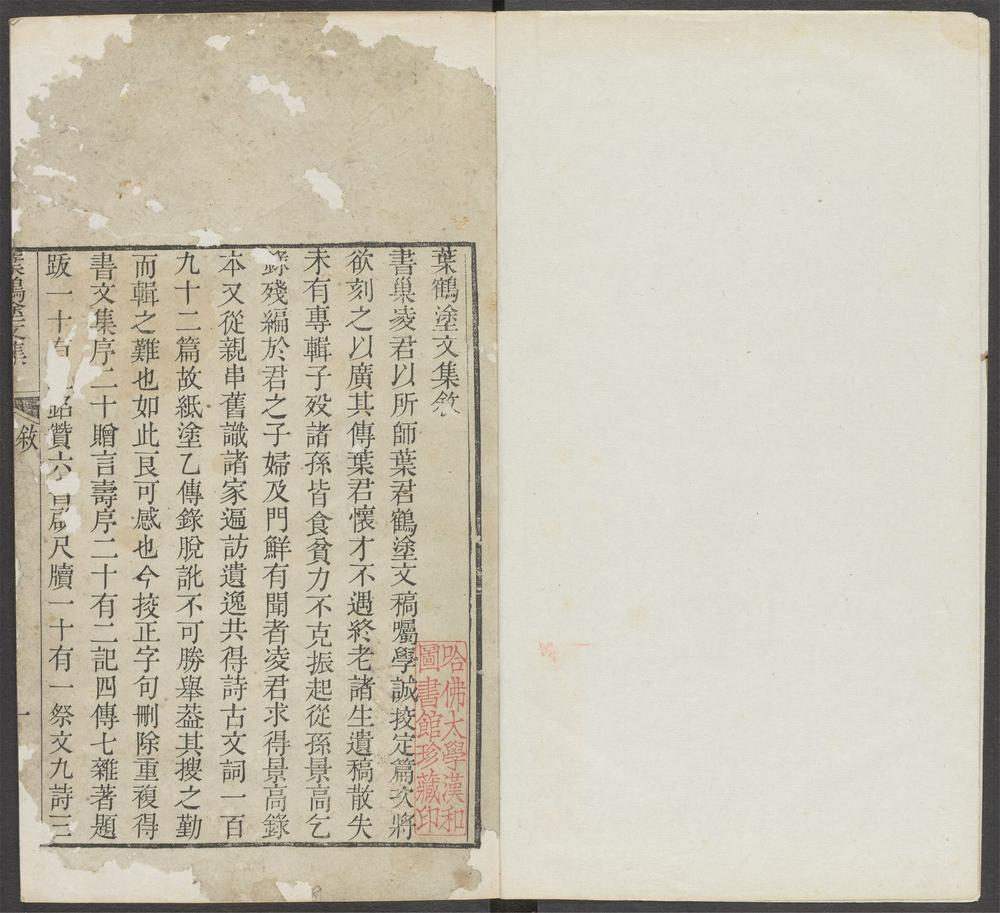 葉鶴塗文集敘
書巢凌君以所師葉君鶴塗文稿囑學誠挍定篇次將
欲刻之以廣其傳葉君懷才不遇終老諸生遺稿散失
未有專輯子歿諸孫皆食貧力不克振起從孫景高乞
錄殘編於君之子婦及門鮮有聞者凌君求得景高錄
本又從親串舊識諸家遍訪遺逸共得詩古文詞一百
九十二篇故紙塗乙傳錄脫訛不可勝舉葢其搜之勤
而輯之難也如此良可感也今挍正字句刪除重複得
書文集序二十贈言壽序二十有二記四傳七雜著題
跋一十有銘贊六尺牘一十有一祭文九詩三
葉鶴塗文集
敘
一
哈佛大學漢和
圖書館珍藏印